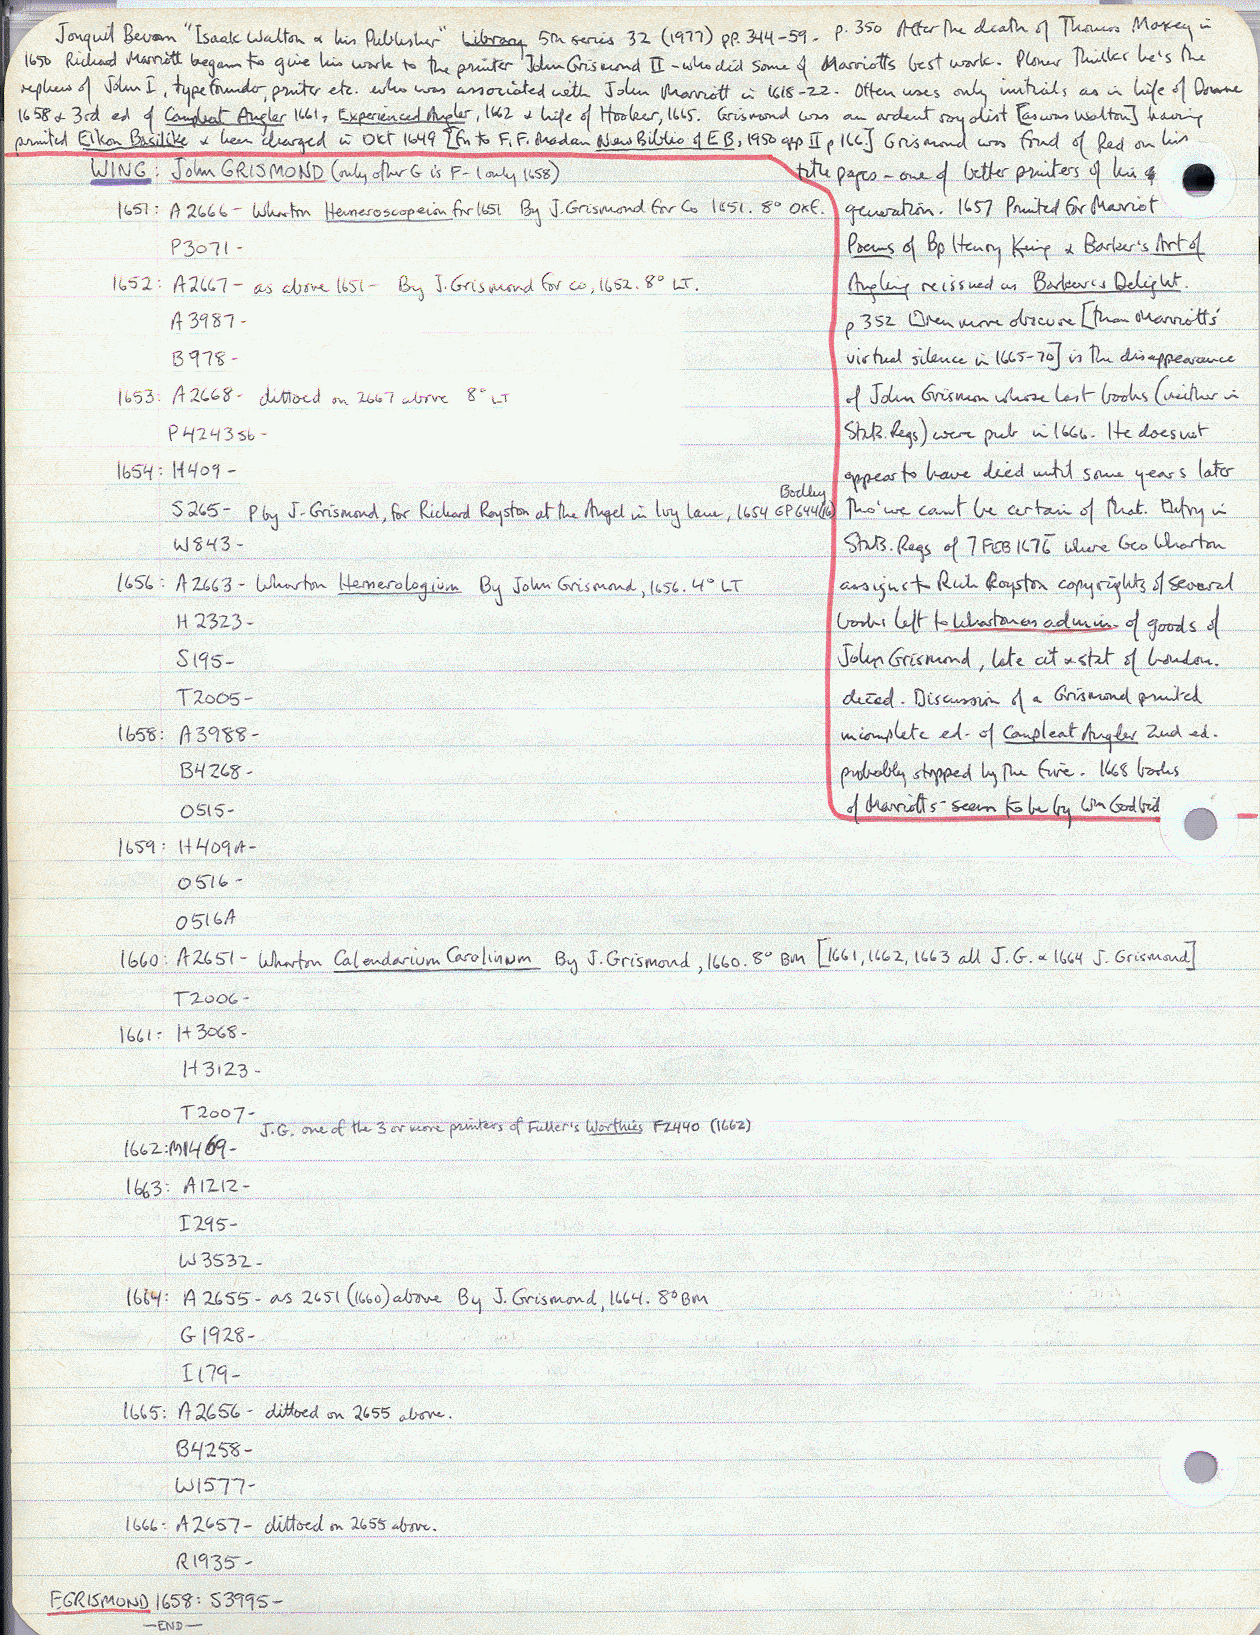 Jonquil Bevan "Isaak Walton & his Publisher" Library 5th series 32 (1977) pp. 344-59. p. 350 After the death of Thomas Maxey in
1650 Richard Marriott began to give his work to the printer John Grismond II - who did some of Marriotts best work. Plomer thinks he's the
nephew of John I, typefounder, printer etc. who was associated with John Marriott in 1618-22. Often uses only initials as in Life of Donne
1658 & 3rd ed of Compleat Angler 1661, Experienced Angler, 1662 & Life of Hooker, 1665. Grismond was an ardent royalist [as was Walton] having
printed Eikon Basilike & been charged in Oct 1649 [fn to F.F. Madan New Biblio of EB, 1950 app II p 166] Grismond was fond of Red on his
title pages - one of better printers of his
generation. 1657 Printed for Marriot
Poems of Bp Henry King & Barker's Art of
Angling reissued as Barker's Delight.
p 352 Even more obscure [than Marriotts'
virtual silence in 1665-70] is the disappearance
of John Grismon whose last books (neither in
Statb. Regs) were pub in 1666. He does not
appear to have died until some years later
tho' we cant be certain of that. Entry in
Statb. Regs of 7 FEB 1675 where Geo Wharton
assigns to Rich Royston copyrights of several
books left to Wharton as admin. of goods of
John Grismond, late cit & stat of London.
deced. Discussion of a Grismond printed
incomplete ed. of Compleat Angler 2nd ed.
probably stopped by the Fire. 1668 books
of Marriotts - seem to be by Wm Godbid
WING: John GRISMOND (only other G is F - 1 only 1658)
1651: A2666 - Wharton Hemeroscopeion for 1651 By J. Grismond for Co 1651. 8° OXF.
P3071 -
1652: A2667 - as above 1651 - By J. Grismond for co, 1652. 8° LT.
A3987 -
B978 -
1653: A2668 - dittoed on 2667 above 8° LT
P4243sb -
1654: H409 -
S265 - P by J. Grismond, for Richard Royston at the Angel in Ivy Lane, 1654 Bodley GP644(16)
W843 -
1656: A2663 - Wharton Hemerologium By John Grismond, 1656. 4° LT
H2323 -
S195 -
T2005 -
1658: A3988 -
B4268 -
O515 -
1659: H409A -
O516 -
O516A
1660: A2651 - Wharton Calendarium Carolinum By J. Grismond, 1660. 8° BM [1661, 1662, 1663 all J.G. & 1664 J. Grismond]
T2006 -
1661: H3068 -
H3123 -
T2007 -
J.G. one of the 3 or more printers of Fuller's Worthies F2440 (1662)
1662: M1469 -
1663: A1212 -
I295 -
W3532 -
1664: A2655 - as 2651 (1660) above By J. Grismond, 1664. 8° BM
G1928 -
I179 -
1665: A2656 - dittoed on 2655 above.
B4258 -
W1577 -
1666: A2657 - dittoed on 2655 above.
R1935 -
F GRISMOND 1658: S3995 -
- END -